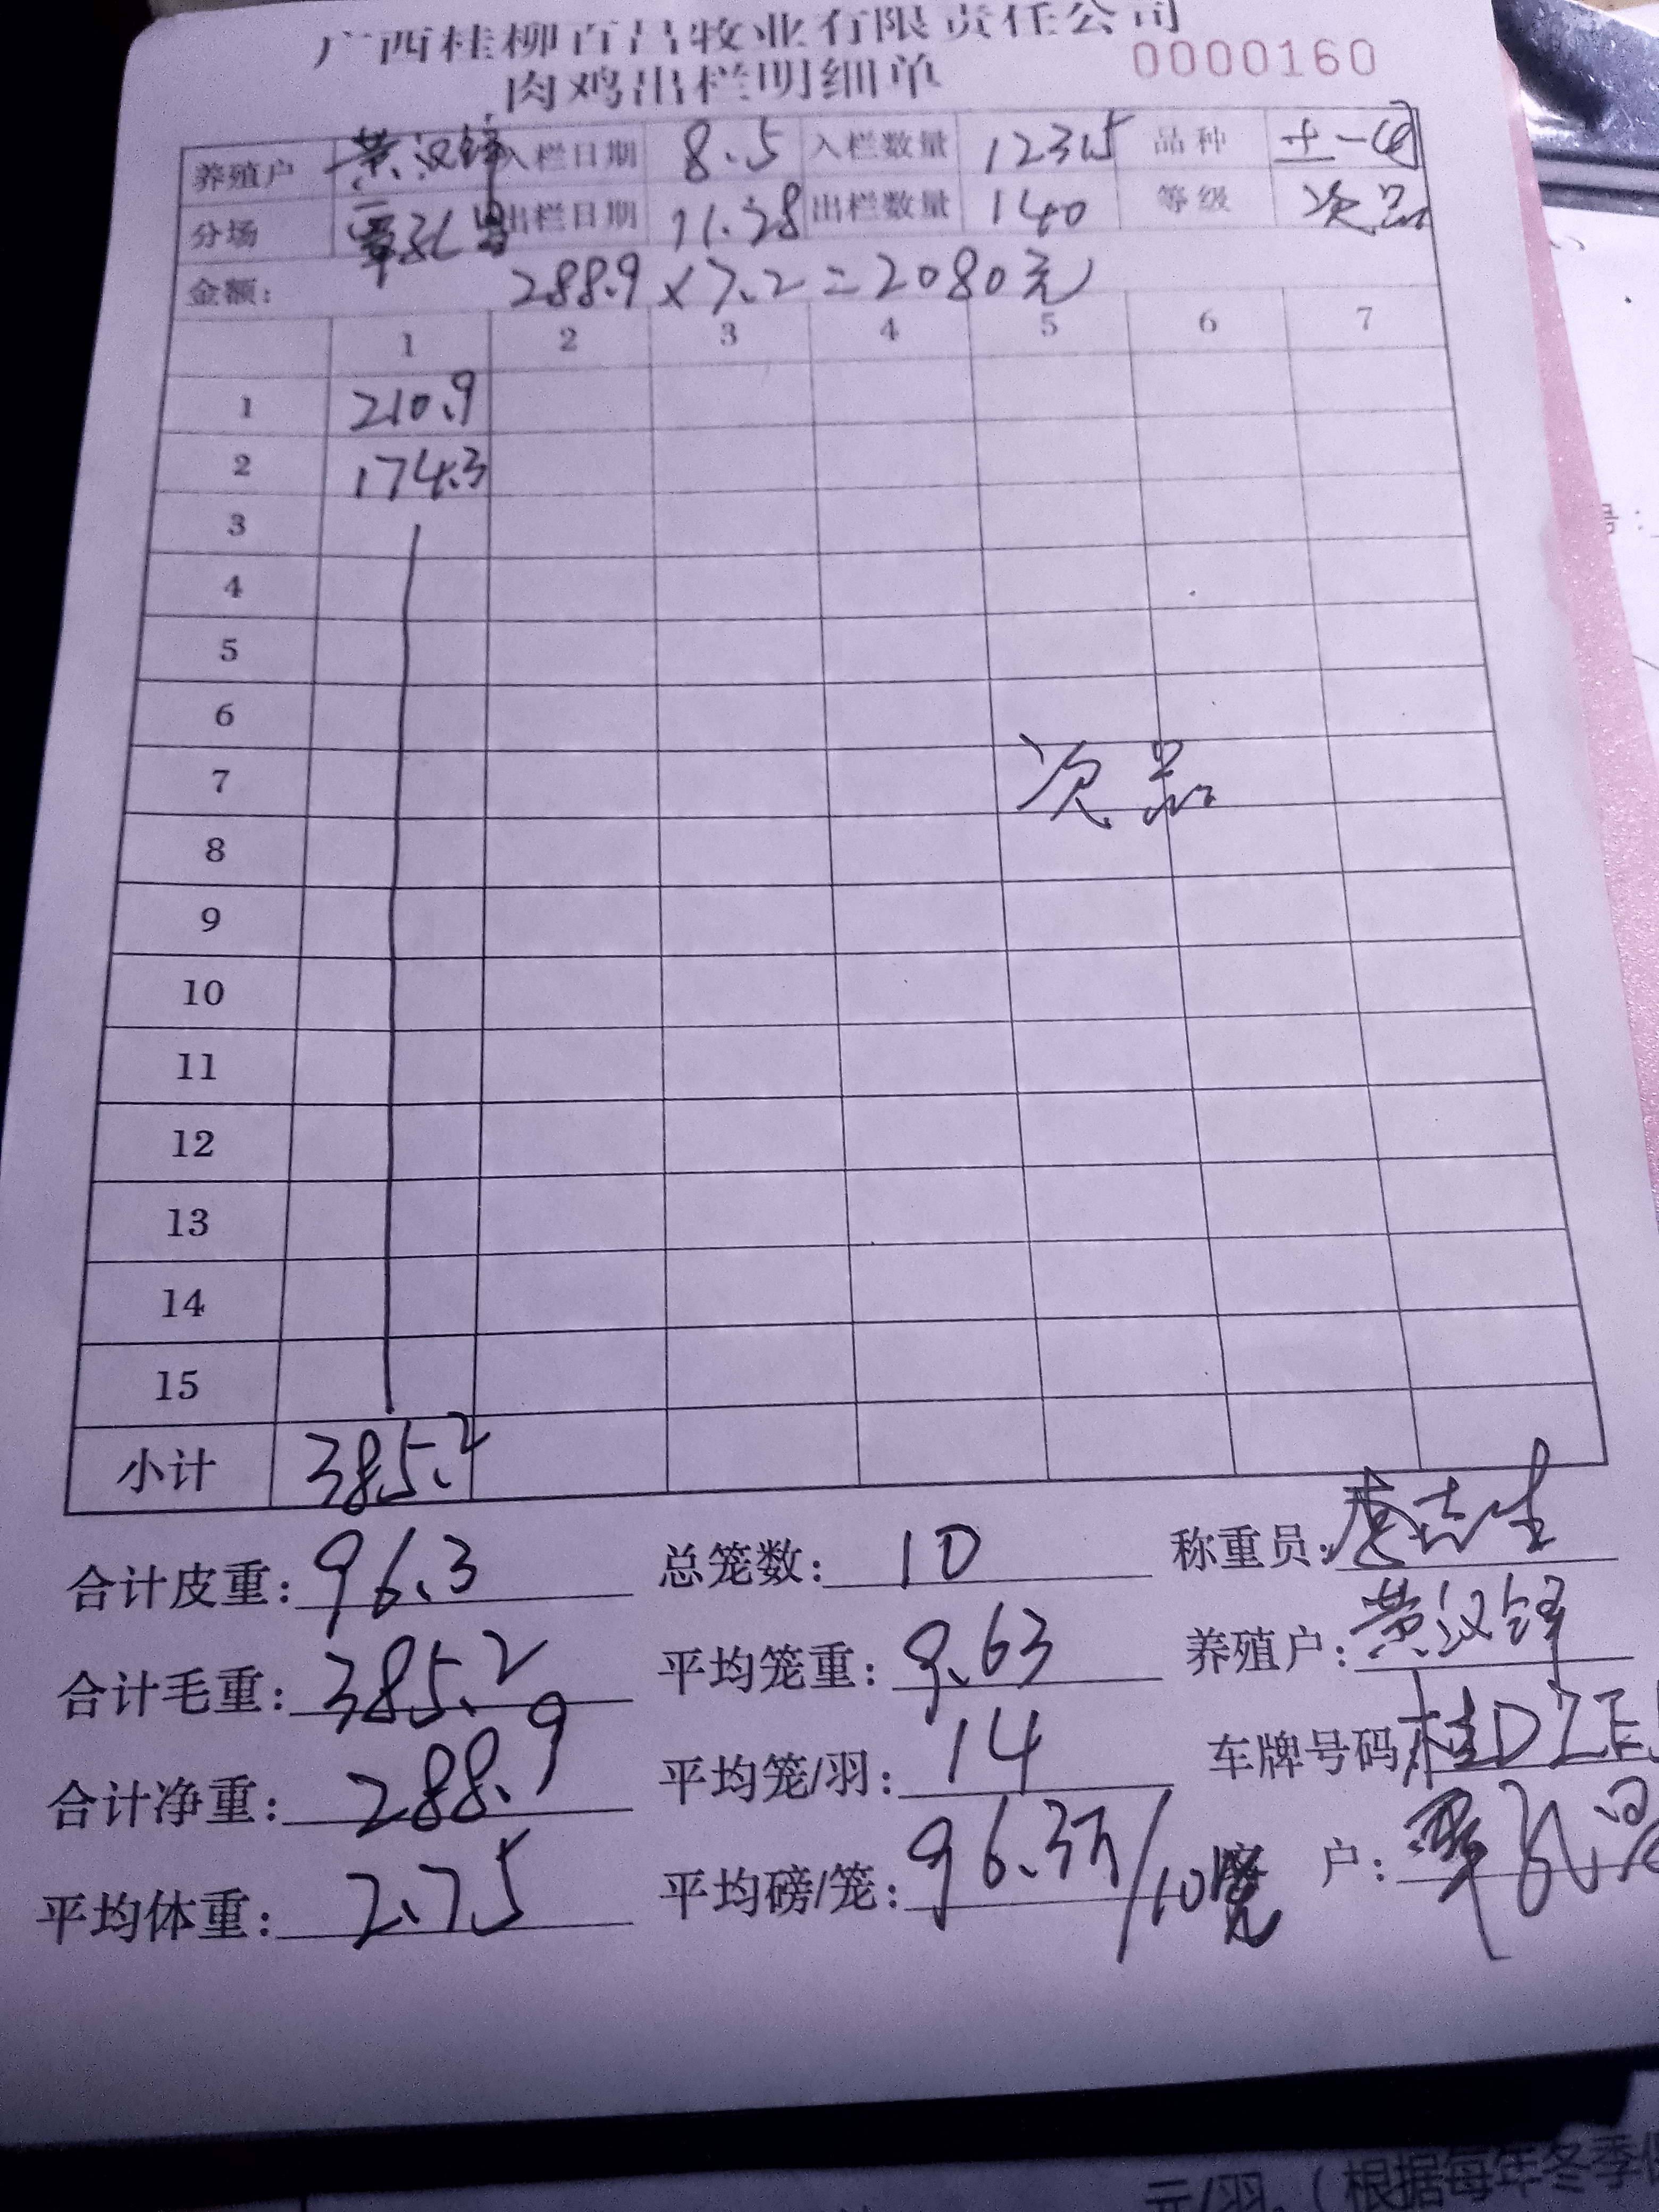 广西桂柳百昌牧业有限责任公司
肉鸡出栏明细单 0000160
养殖户 黄汉锋 入栏日期 8.5 入栏数量 12315 品种 土一
分场 出栏日期 11.28 出栏数量 140 等级 次品
金额: 288.9×7.2=2080元
1 2 3 4 5 6 7
1 210.9
2 174.3
3
4
5
6
7 次品
8
9
10
11
12
13
14
15
小计 385.2
合计皮重: 96.3 总笼数: 10 称重员:
合计毛重: 385.2 平均笼重: 9.63 养殖户: 黄汉锋
合计净重: 288.9 平均笼/羽: 14 车牌号码 桂DZE
平均体重: 2.75 平均磅/笼: 96.3 /10 户:
元/羽,(根据每年冬季